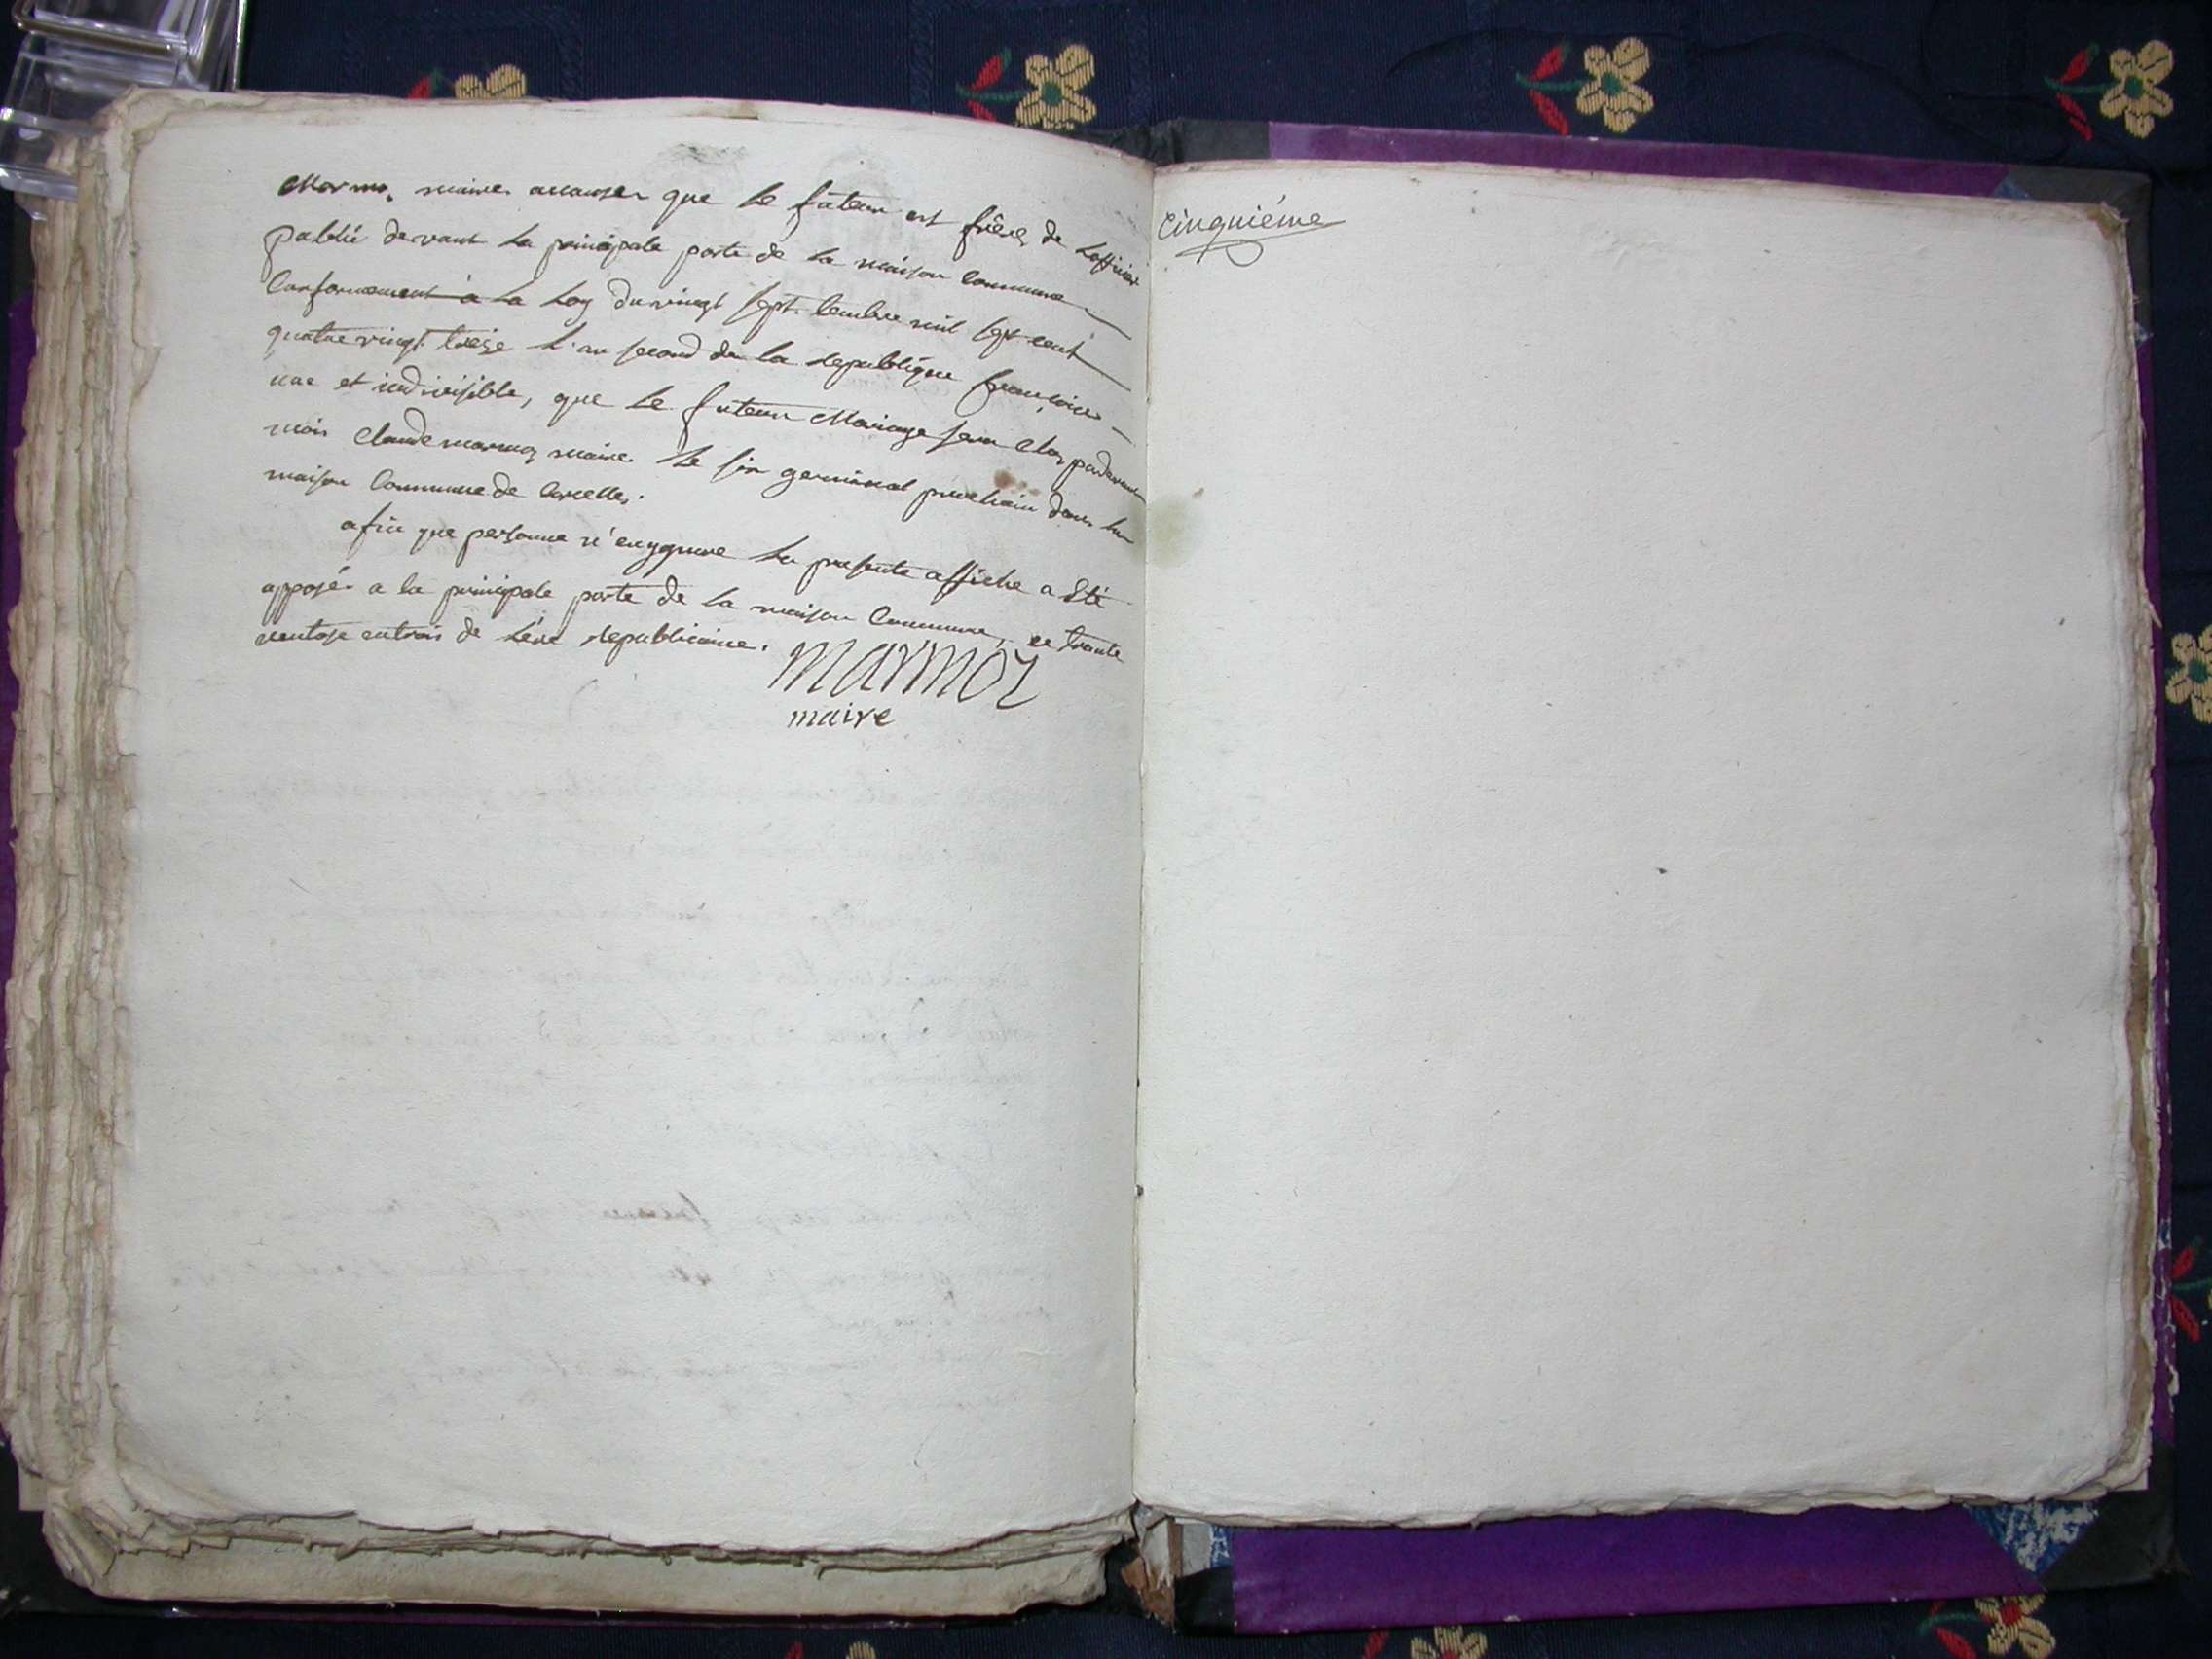 maire que le futeur est frere de Lofficier
publié devant la principale porte de la maison Commune
Conformement a la Loy du vingt sept. tembre mil sept cent
quatre vingt treize L'an second de la republique françoise
une et indivisible, que le futeur Mariage sera
moi Claude marmoz maire le six germinal prochain dans la
maison Commune de
afin que personne n'en ygnore La presente affiche a Eté
apposée a la principale porte de la maison Commune, ce trante
ventose entrois de L'ere republicaine.
marmoz
maire
Cinquiéme